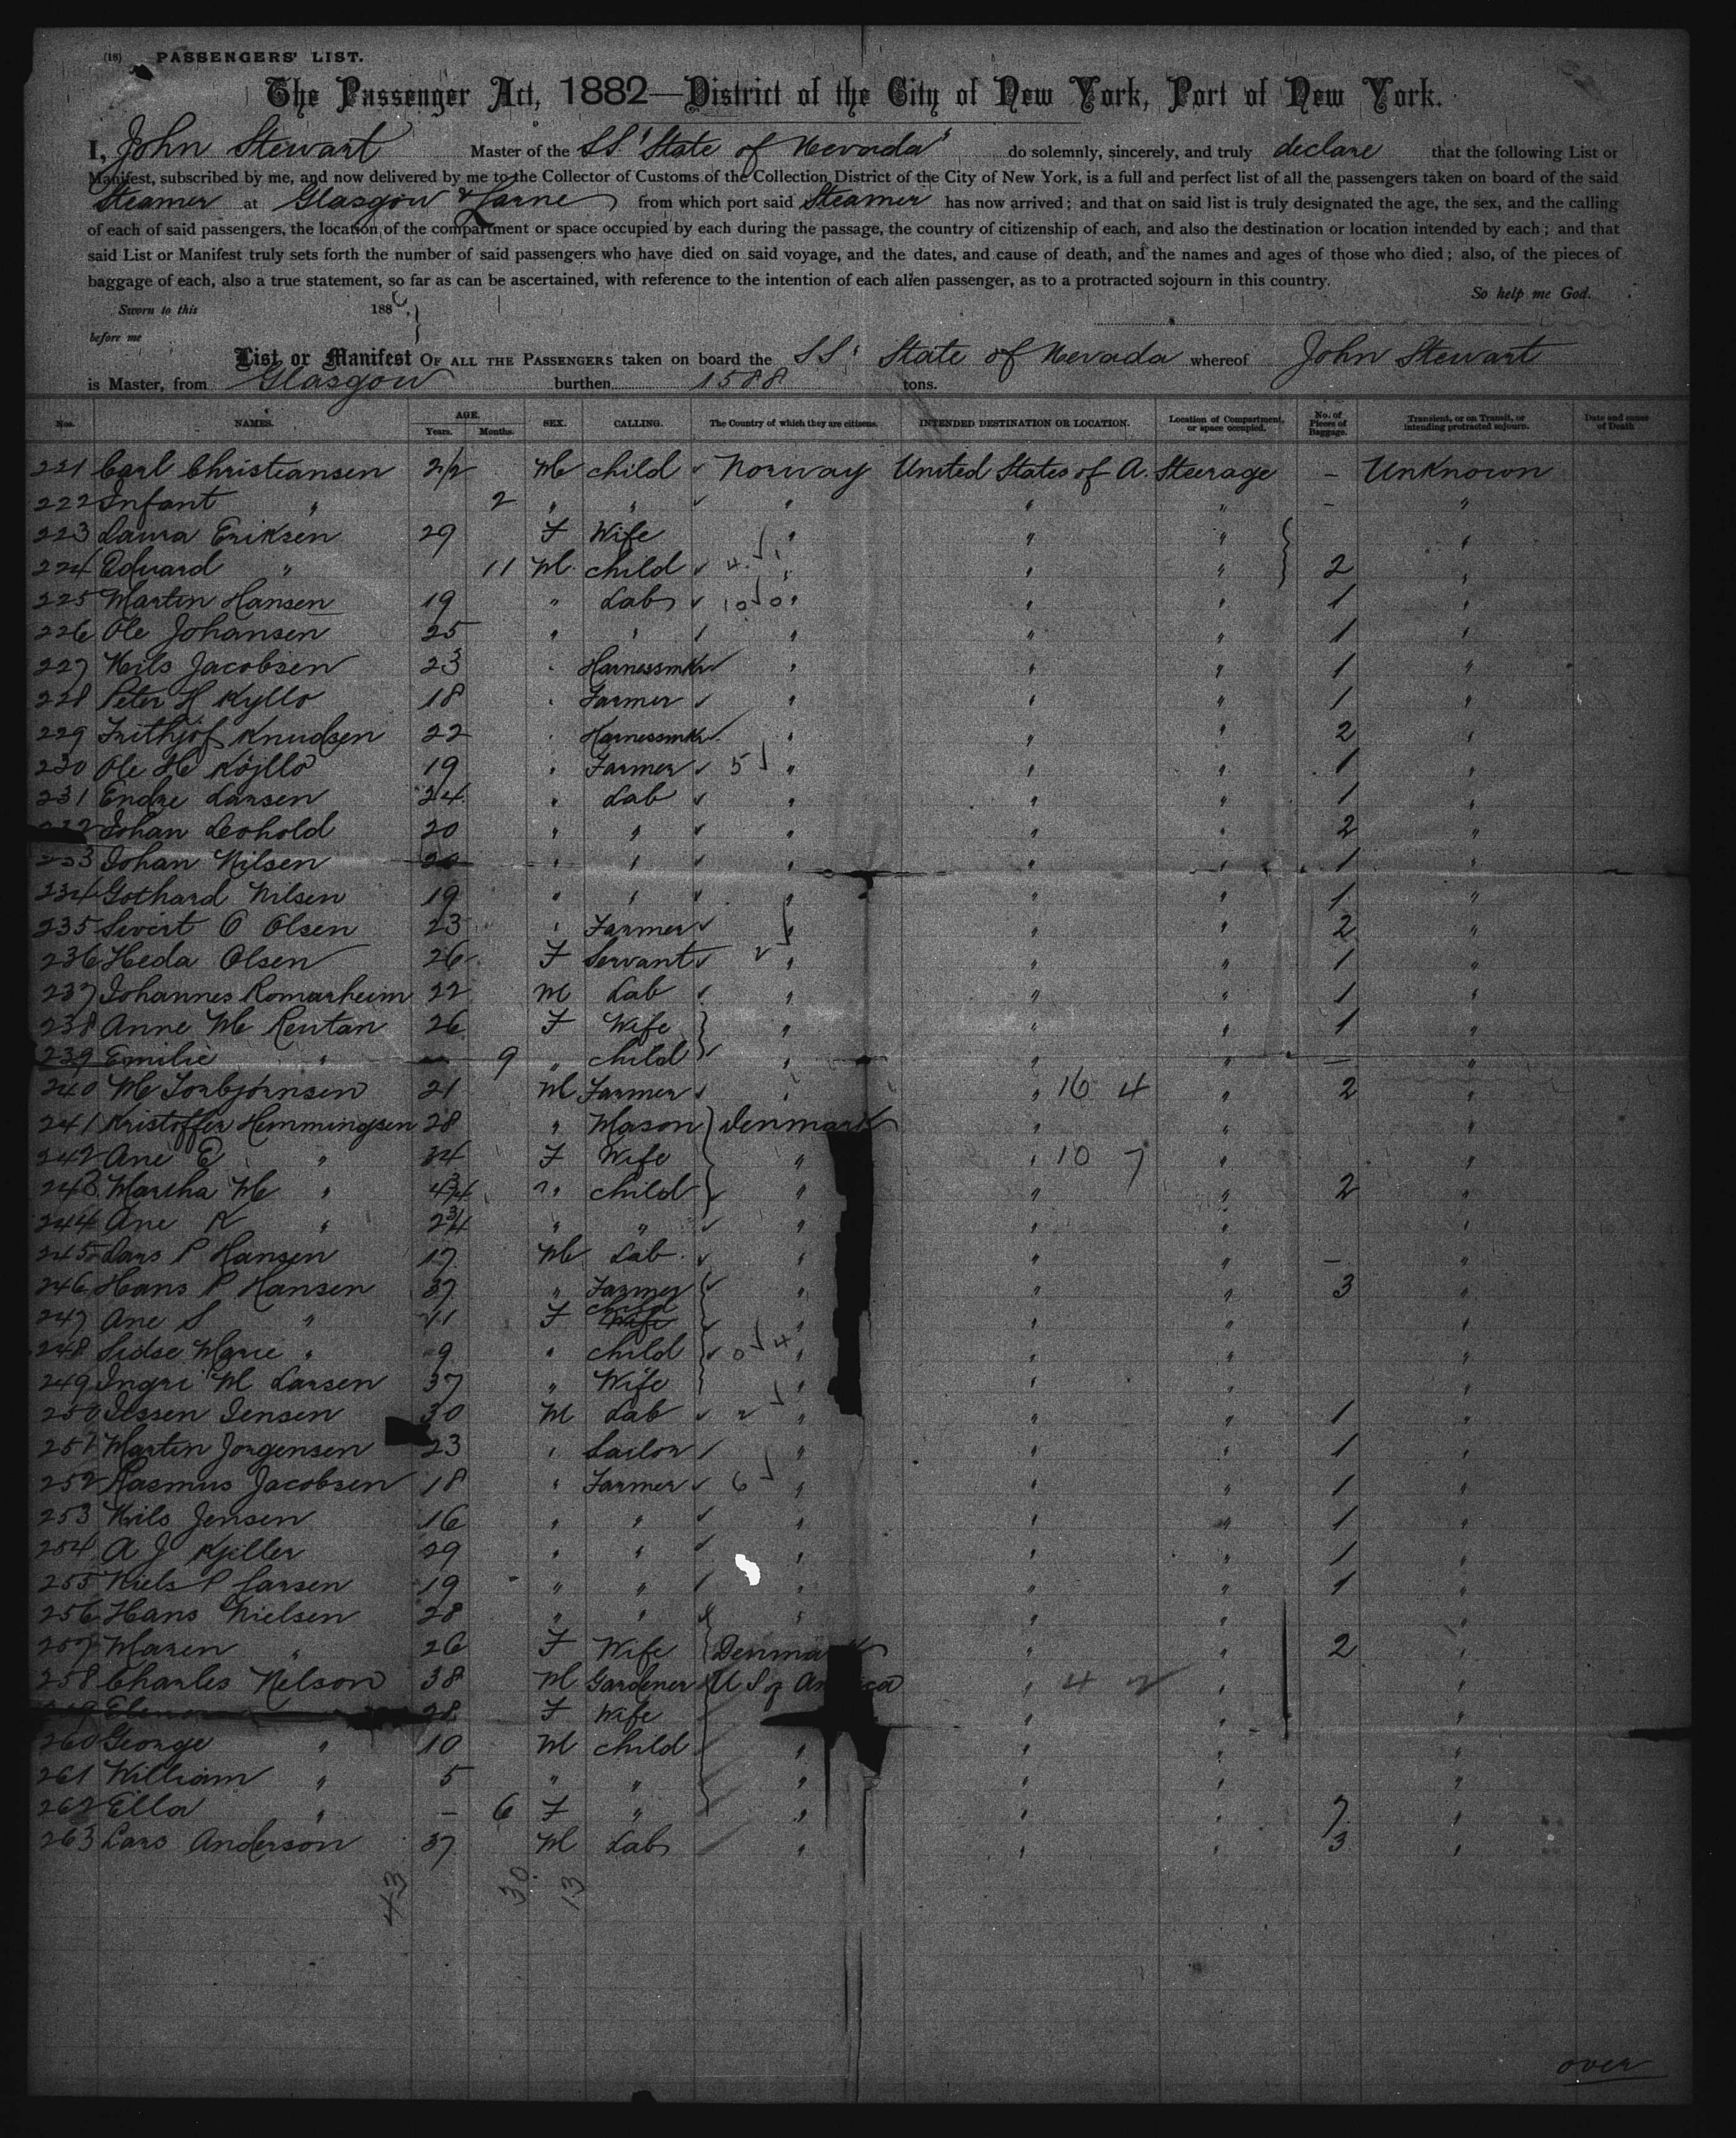 (18) PASSENGERS' LIST.
The Passenger Act, 1882—District of the City of New York, Port of New York.
I, John Stewart Master of the SS "State of Nevada" do solemnly, sincerely, and truly declare that the following List or
Manifest, subscribed by me, and now delivered by me to the Collector of Customs of the Collection District of the City of New York, is a full and perfect list of all the passengers taken on board of the said
Steamer at Glasgow & Larne from which port said Steamer has now arrived; and that on said list is truly designated the age, the sex, and the calling
of each of said passengers, the location of the compartment or space occupied by each during the passage, the country of citizenship of each, and also the destination or location intended by each; and that
said List or Manifest truly sets forth the number of said passengers who have died on said voyage, and the dates, and cause of death, and the names and ages of those who died; also, of the pieces of
baggage of each, also a true statement, so far as can be ascertained, with reference to the intention of each alien passenger, as to a protracted sojourn in this country.
So help me God.
Sworn to this 188
before me
List or Manifest OF ALL THE PASSENGERS taken on board the SS State of Nevada whereof John Stewart
is Master, from Glasgow burthen 1588 tons.
Nos. NAMES. AGE. Years. Months. SEX. CALLING. The Country of which they are citizens. INTENDED DESTINATION OR LOCATION. Location of Compartment, or space occupied. No. of Pieces of Baggage. Transient, or on Transit, or intending protracted sojourn. Date and cause of Death
221 Carl Christiansen M child Norway United States of A. Steerage - Unknown
222 Infant " 2 " " " " " - "
223 Laura Eriksen 29 F Wife " " " "
224 Edvard " 11 M child 4 " " " 2 "
225 Martin Hansen 19 " Lab 10 0 " " " 1 "
226 Ole Johansen 25 " " " " " 1 "
227 Nils Jacobsen 23 " Harnessmkr " " " 1 "
228 Peter H Kyllo 18 " Farmer " " " 1 "
229 Frithjof Knudsen 22 " Harnessmkr " " " 2 "
230 Ole H Kojllo 19 " Farmer 5 " " " 1 "
231 Endre Larsen 24 " Lab " " " 1 "
232 Johan Leohold 20 " " " " " 2 "
233 Johan Nilsen 20 " " " " " 1 "
234 Gothard Nilsen 19 " " " " " 1 "
235 Sivert O Olsen 23 " Farmer " " " 2 "
236 Heda Olsen 26 F Servant 2 " " " 1 "
237 Johannes Romarheim 22 M Lab " " " 1 "
238 Anne M Rentan 26 F Wife " " " 1 "
239 Emilie " - 9 " child " " " - "
240 M Torbjornsen 21 M Farmer " " 16 4 " 2 "
241 Kristoffer Hemmingsen 28 " Mason Denmark " " "
242 Ane E " 34 F Wife " " 10 7 " "
243 Martha M " 4 3/4 " child " " " 2 "
244 Ane K " 2 3/4 " " " " " "
245 Lars P Hansen 17 M Lab " " " - "
246 Hans P Hansen 37 " Farmer " " " 3 "
247 Ane S " 11 F child Wife " " " "
248 Sidse Marie " 9 " child 0 4 " " " "
249 Ingri M Larsen 37 " Wife " " " "
250 Jessen Jensen 30 M Lab 2 " " " 1 "
251 Martin Jorgensen 23 " Sailor " " " 1 "
252 Rasmus Jacobsen 18 " Farmer 6 " " " 1 "
253 Nils Jensen 16 " " " " " 1 "
254 A J Kjiller 29 " " " " " 1 "
255 Niels P Larsen 19 " " " " " 1 "
256 Hans Nielsen 28 " " " " " "
257 Maren " 26 F Wife Denmark " " 2 "
258 Charles Nelson 38 M Gardener U S of America " 4 2 " "
28 F Wife " " "
260 George " 10 M child " " " "
261 William " 5 " " " " " "
262 Ella " - 6 F " " " " 7 "
263 Lars Anderson 37 M Lab " " " 3 "
43 30 13
over